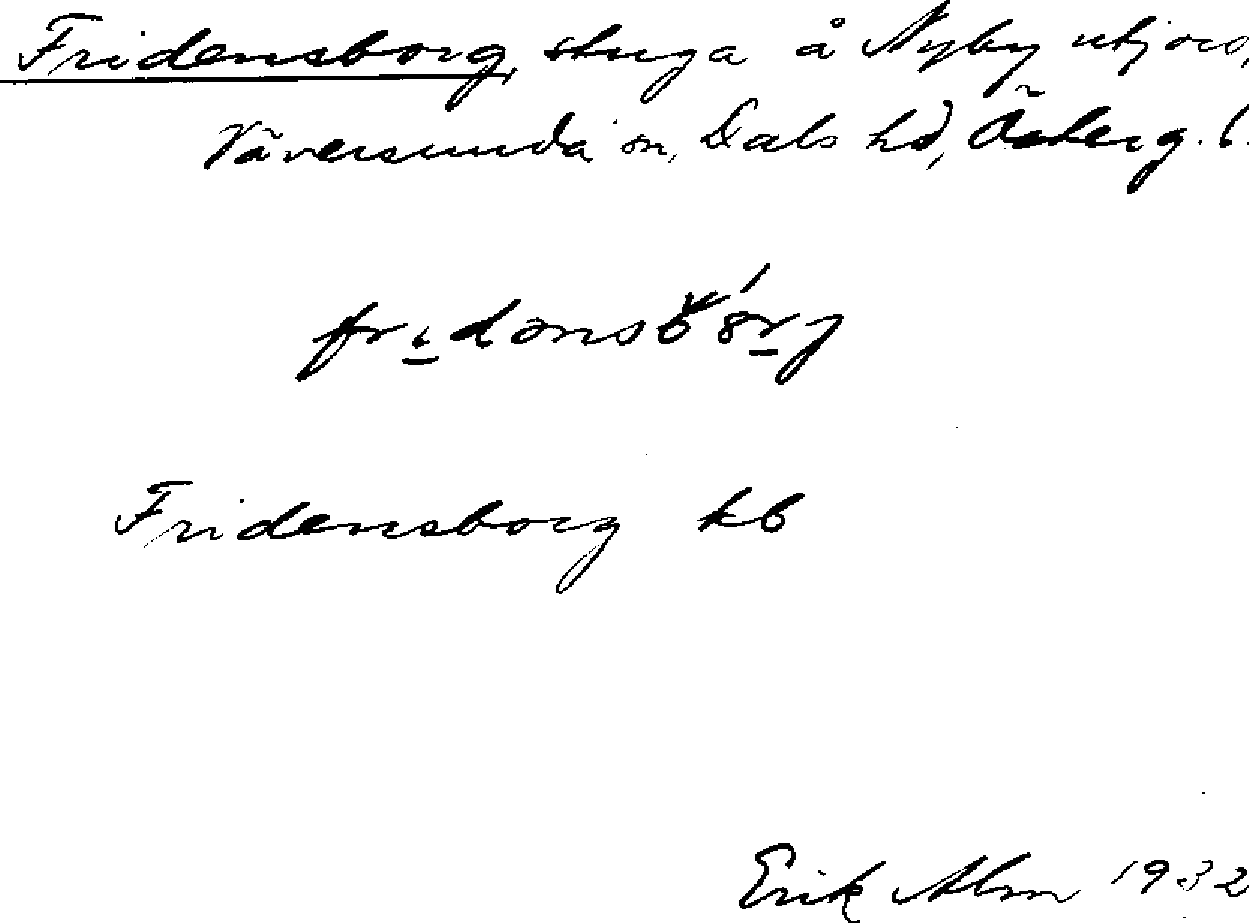 Fridensborg, stuga å Nyby utjord,
Väversunda sn, Dals hd, Österg. l.
Fridensborg kb
Erik Alm 1932